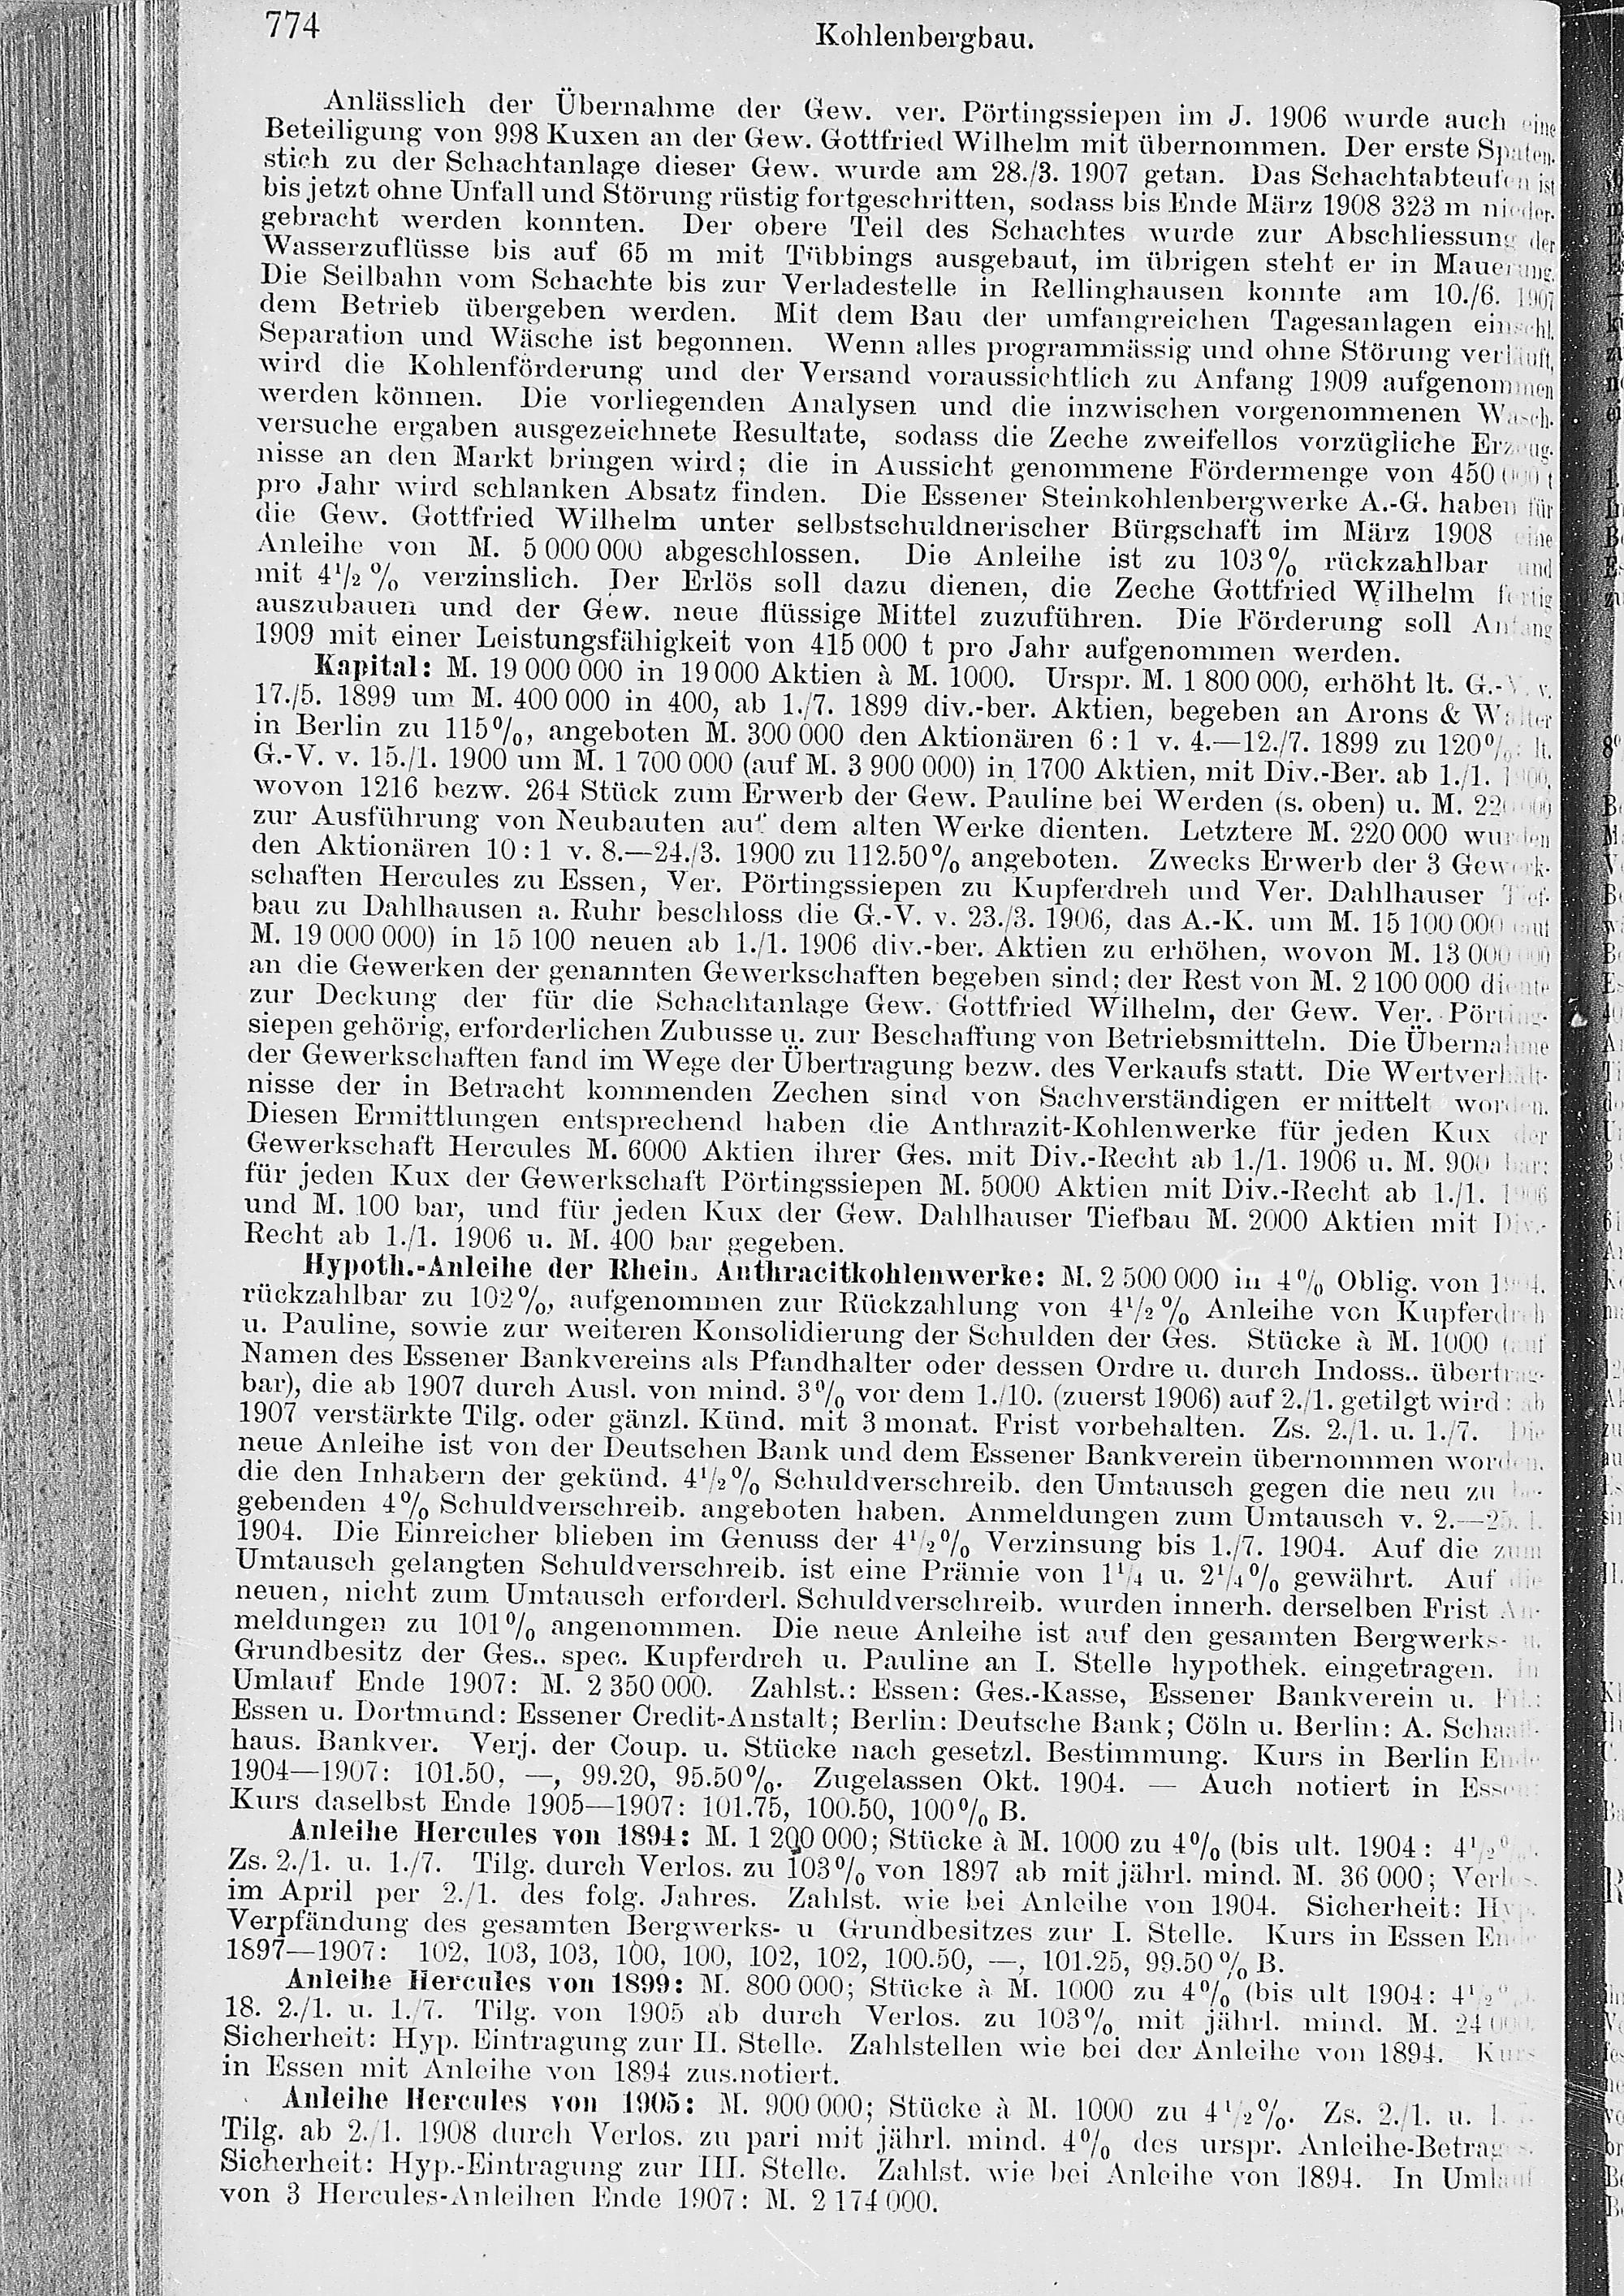 774
Kohlenbergbau.
Anlässlich der Übernahme der Gew. ver. Pörtingssiepen im J. 1906 wurde auch eine
Beteiligung von 998 Kuxen an der Gew. Gottfried Wilhelm mit übernommen. Der erste Spaten-
stich zu der Schachtanlage dieser Gew. wurde am 28./3. 1907 getan. Das Schachtabteufen ist
bis jetzt ohne Unfall und Störung rüstig fortgeschritten, sodass bis Ende März 1908 323 m nieder-
gebracht werden konnten. Der obere Teil des Schachtes wurde zur Abschliessung der
Wasserzuflüsse bis auf 65 m mit Tübbings ausgebaut, im übrigen steht er in Mauerung.
Die Seilbahn vom Schachte bis zur Verladestelle in Rellinghausen konnte am 10./6. 1907
dem Betrieb übergeben werden. Mit dem Bau der umfangreichen Tagesanlagen einschl.
Separation und Wäsche ist begonnen. Wenn alles programmässig und ohne Störung verläuft,
wird die Kohlenförderung und der Versand voraussichtlich zu Anfang 1909 aufgenommen
werden können. Die vorliegenden Analysen und die inzwischen vorgenommenen Wasch-
versuche ergaben ausgezeichnete Resultate, sodass die Zeche zweifellos vorzügliche Erzeug-
nisse an den Markt bringen wird; die in Aussicht genommene Fördermenge von 450 000 t
pro Jahr wird schlanken Absatz finden. Die Essener Steinkohlenbergwerke A.-G. haben für
die Gew. Gottfried Wilhelm unter selbstschuldnerischer Bürgschaft im März 1908 eine
Anleihe von M. 5 000 000 abgeschlossen. Die Anleihe ist zu 103% rückzahlbar und
mit 4½% verzinslich. Der Erlös soll dazu dienen, die Zeche Gottfried Wilhelm fertig
auszubauen und der Gew. neue flüssige Mittel zuzuführen. Die Förderung soll Anfang
1909 mit einer Leistungsfähigkeit von 415 000 t pro Jahr aufgenommen werden.
Kapital: M. 19 000 000 in 19 000 Aktien à M. 1000. Urspr. M. 1 800 000, erhöht lt. G.-V. v.
17./5. 1899 um M. 400 000 in 400, ab 1./7. 1899 div.-ber. Aktien, begeben an Arons & Walter
in Berlin zu 115%, angeboten M. 300 000 den Aktionären 6 : 1 v. 4.—12./7. 1899 zu 120%; lt.
G.-V. v. 15./1. 1900 um M. 1 700 000 (auf M. 3 900 000) in 1700 Aktien, mit Div.-Ber. ab 1./1. 1900,
wovon 1216 bezw. 264 Stück zum Erwerb der Gew. Pauline bei Werden (s. oben) u. M. 220 000
zur Ausführung von Neubauten auf dem alten Werke dienten. Letztere M. 220 000 wurden
den Aktionären 10 : 1 v. 8.—24./3. 1900 zu 112.50% angeboten. Zwecks Erwerb der 3 Gewerk-
schaften Hercules zu Essen, Ver. Pörtingssiepen zu Kupferdreh und Ver. Dahlhauser Tief-
bau zu Dahlhausen a. Ruhr beschloss die G.-V. v. 23./3. 1906, das A.-K. um M. 15 100 000 (auf
M. 19 000 000) in 15 100 neuen ab 1./1. 1906 div.-ber. Aktien zu erhöhen, wovon M. 13 000 000
an die Gewerken der genannten Gewerkschaften begeben sind; der Rest von M. 2 100 000 diente
zur Deckung der für die Schachtanlage Gew. Gottfried Wilhelm, der Gew. Ver. Pörtings-
siepen gehörig, erforderlichen Zubusse u. zur Beschaffung von Betriebsmitteln. Die Übernahme
der Gewerkschaften fand im Wege der Übertragung bezw. des Verkaufs statt. Die Wertverhält-
nisse der in Betracht kommenden Zechen sind von Sachverständigen ermittelt worden.
Diesen Ermittlungen entsprechend haben die Anthrazit-Kohlenwerke für jeden Kux der
Gewerkschaft Hercules M. 6000 Aktien ihrer Ges. mit Div.-Recht ab 1./1. 1906 u. M. 900 bar;
für jeden Kux der Gewerkschaft Pörtingssiepen M. 5000 Aktien mit Div.-Recht ab 1./1. 1906
und M. 100 bar, und für jeden Kux der Gew. Dahlhauser Tiefbau M. 2000 Aktien mit Div.-
Recht ab 1./1. 1906 u. M. 400 bar gegeben.
Hypoth.-Anleihe der Rhein. Anthracitkohlenwerke: M. 2 500 000 in 4% Oblig. von 1904,
rückzahlbar zu 102%, aufgenommen zur Rückzahlung von 4½% Anleihe von Kupferdreh
u. Pauline, sowie zur weiteren Konsolidierung der Schulden der Ges. Stücke à M. 1000 (auf
Namen des Essener Bankvereins als Pfandhalter oder dessen Ordre u. durch Indoss.. übertrag-
bar), die ab 1907 durch Ausl. von mind. 3% vor dem 1./10. (zuerst 1906) auf 2./1. getilgt wird; ab
1907 verstärkte Tilg. oder gänzl. Künd. mit 3 monat. Frist vorbehalten. Zs. 2./1. u. 1./7. Die
neue Anleihe ist von der Deutschen Bank und dem Essener Bankverein übernommen worden,
die den Inhabern der gekünd. 4½% Schuldverschreib. den Umtausch gegen die neu zu be-
gebenden 4% Schuldverschreib. angeboten haben. Anmeldungen zum Umtausch v. 2.—25./1.
1904. Die Einreicher blieben im Genuss der 4½% Verzinsung bis 1./7. 1904. Auf die zum
Umtausch gelangten Schuldverschreib. ist eine Prämie von 1¼ u. 2¼% gewährt. Auf die
neuen, nicht zum Umtausch erforderl. Schuldverschreib. wurden innerh. derselben Frist An-
meldungen zu 101% angenommen. Die neue Anleihe ist auf den gesamten Bergwerks- u.
Grundbesitz der Ges.. spec. Kupferdreh u. Pauline an I. Stelle hypothek. eingetragen. In
Umlauf Ende 1907: M. 2 350 000. Zahlst.: Essen: Ges.-Kasse, Essener Bankverein u. Fil.:
Essen u. Dortmund: Essener Credit-Anstalt; Berlin: Deutsche Bank; Cöln u. Berlin: A. Schaaff-
haus. Bankver. Verj. der Coup. u. Stücke nach gesetzl. Bestimmung. Kurs in Berlin Ende
1904—1907: 101.50, —, 99.20, 95.50%. Zugelassen Okt. 1904. — Auch notiert in Essen:
Kurs daselbst Ende 1905—1907: 101.75, 100.50, 100% B.
Anleihe Hercules von 1894: M. 1 200 000; Stücke à M. 1000 zu 4% (bis ult. 1904: 4½%).
Zs. 2./1. u. 1./7. Tilg. durch Verlos. zu 103% von 1897 ab mit jährl. mind. M. 36 000; Verlos.
im April per 2./1. des folg. Jahres. Zahlst. wie bei Anleihe von 1904. Sicherheit: Hyp.
Verpfändung des gesamten Bergwerks- u Grundbesitzes zur I. Stelle. Kurs in Essen Ende
1897—1907: 102, 103, 103, 100, 100, 102, 102, 100.50, —, 101.25, 99.50% B.
Anleihe Hercules von 1899: M. 800 000; Stücke à M. 1000 zu 4% (bis ult 1904: 4½%).
18. 2./1. u. 1./7. Tilg. von 1905 ab durch Verlos. zu 103% mit jährl. mind. M. 24 000.
Sicherheit: Hyp. Eintragung zur II. Stelle. Zahlstellen wie bei der Anleihe von 1894. Kurs
in Essen mit Anleihe von 1894 zus.notiert.
Anleihe Hercules von 1905: M. 900 000; Stücke à M. 1000 zu 4½%. Zs. 2./1. u.
Tilg. ab 2./1. 1908 durch Verlos. zu pari mit jährl. mind. 4% des urspr. Anleihe-Betrages.
Sicherheit: Hyp.-Eintragung zur III. Stelle. Zahlst. wie bei Anleihe von 1894. In Umlauf
von 3 Hercules-Anleihen Ende 1907: M. 2 174 000.